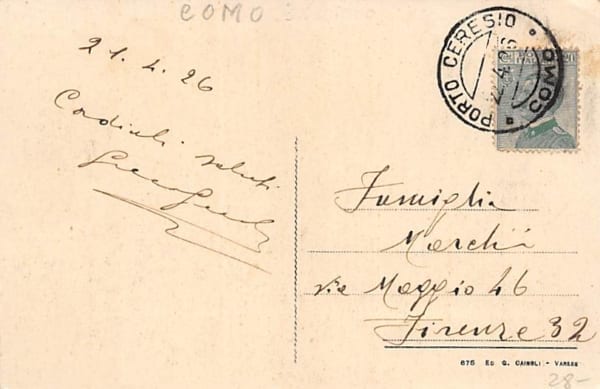 COMO
21.4.26
Cordiali saluti
PORTO CERESIO
COMO
Famiglia
Marchi
via Maggio 46
Firenze 32
675 ED. G. CAINELLI - VARESE
28-